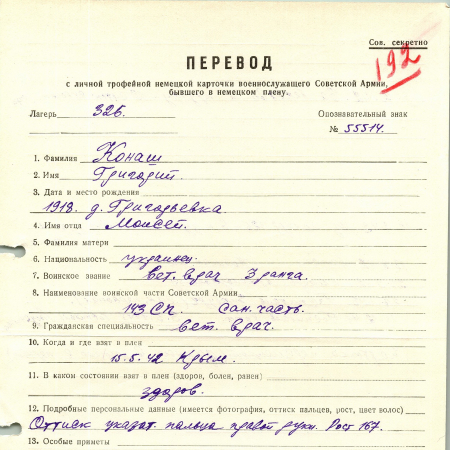 Сов. секретно
192
ПЕРЕВОД
с личной трофейной немецкой карточки военнослужащего Советской Армии,
бывшего в немецком плену.
Лагерь 326. Опознавательный знак
№ 55514.
1. Фамилия Конаш
2. Имя Григорий.
3. Дата и место рождения
1918. д. Григорьевка
4. Имя отца Моисей.
5. Фамилия матери
6. Национальность украинец.
7. Воинское звание Вет. врач 3 ранга.
8. Наименование воинской части Советской Армии
143 СП сан. часть.
9. Гражданская специальность вет. врач.
10. Когда и где взят в плен
15.5.42 Крым.
11. В каком состоянии взят в плен (здоров, болен, ранен)
здоров.
12. Подробные персональные данные (имеется фотография, оттиск пальцев, рост, цвет волос)
Оттиск указат. пальца правой руки. Рост 167.
13. Особые приметы